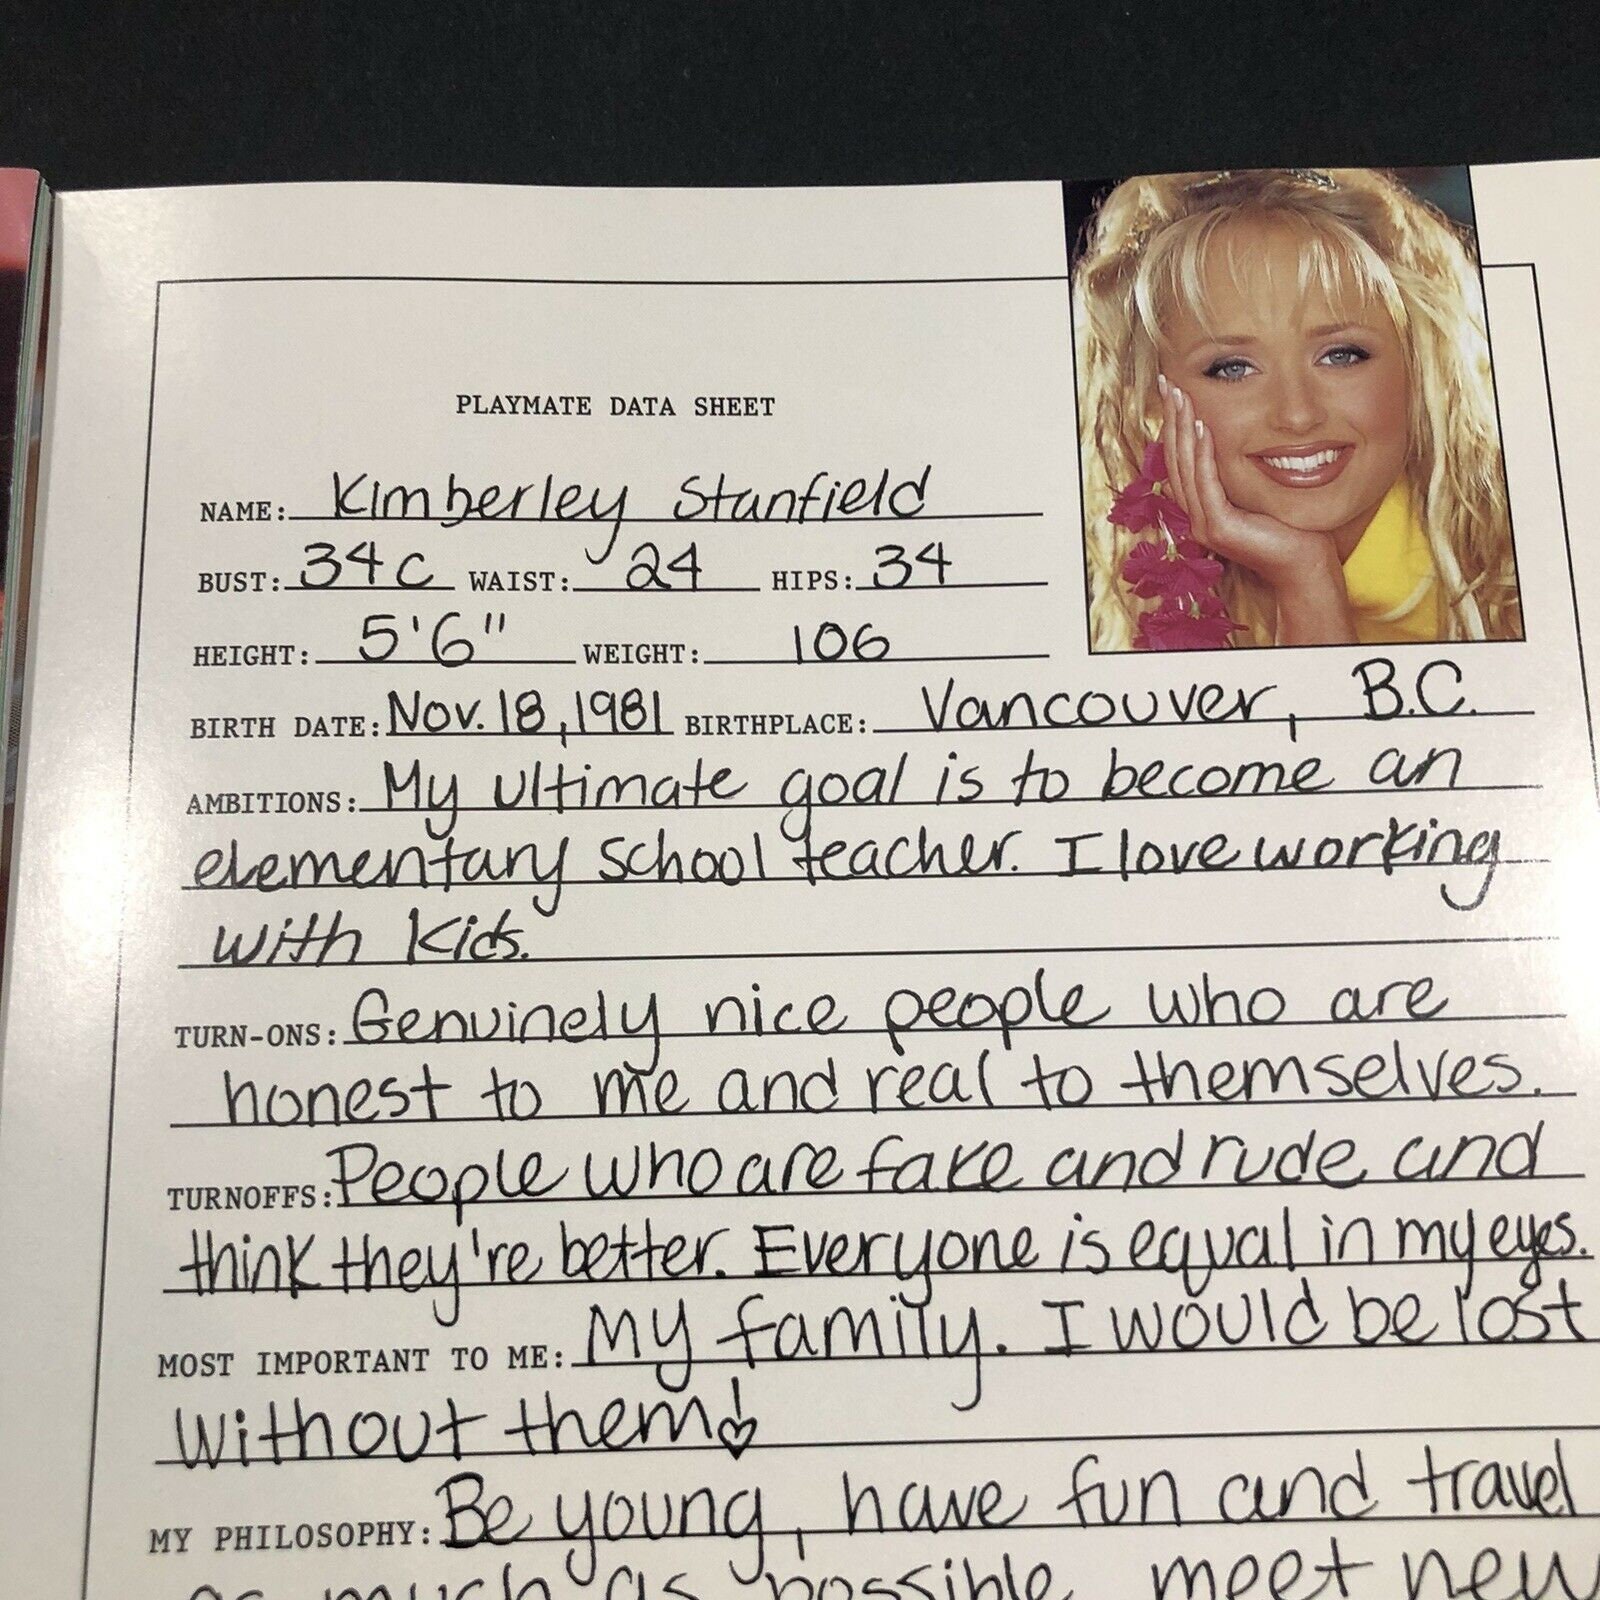 PLAYMATE DATA SHEET
NAME: Kimberley Stanfield
BUST: 34C WAIST: 24 HIPS: 34
HEIGHT: 5'6" WEIGHT: 106
BIRTH DATE: Nov. 18, 1981 BIRTHPLACE: Vancouver, B.C.
AMBITIONS: My ultimate goal is to become an
elementary school teacher. I love working
with kids.
TURN-ONS: Genuinely nice people who are
honest to me and real to themselves.
TURNOFFS: People who are fake and rude and
think they're better. Everyone is equal in my eyes.
MOST IMPORTANT TO ME: My family. I would be lost
without them!
MY PHILOSOPHY: Be young, have fun and travel
as much as possible, meet new